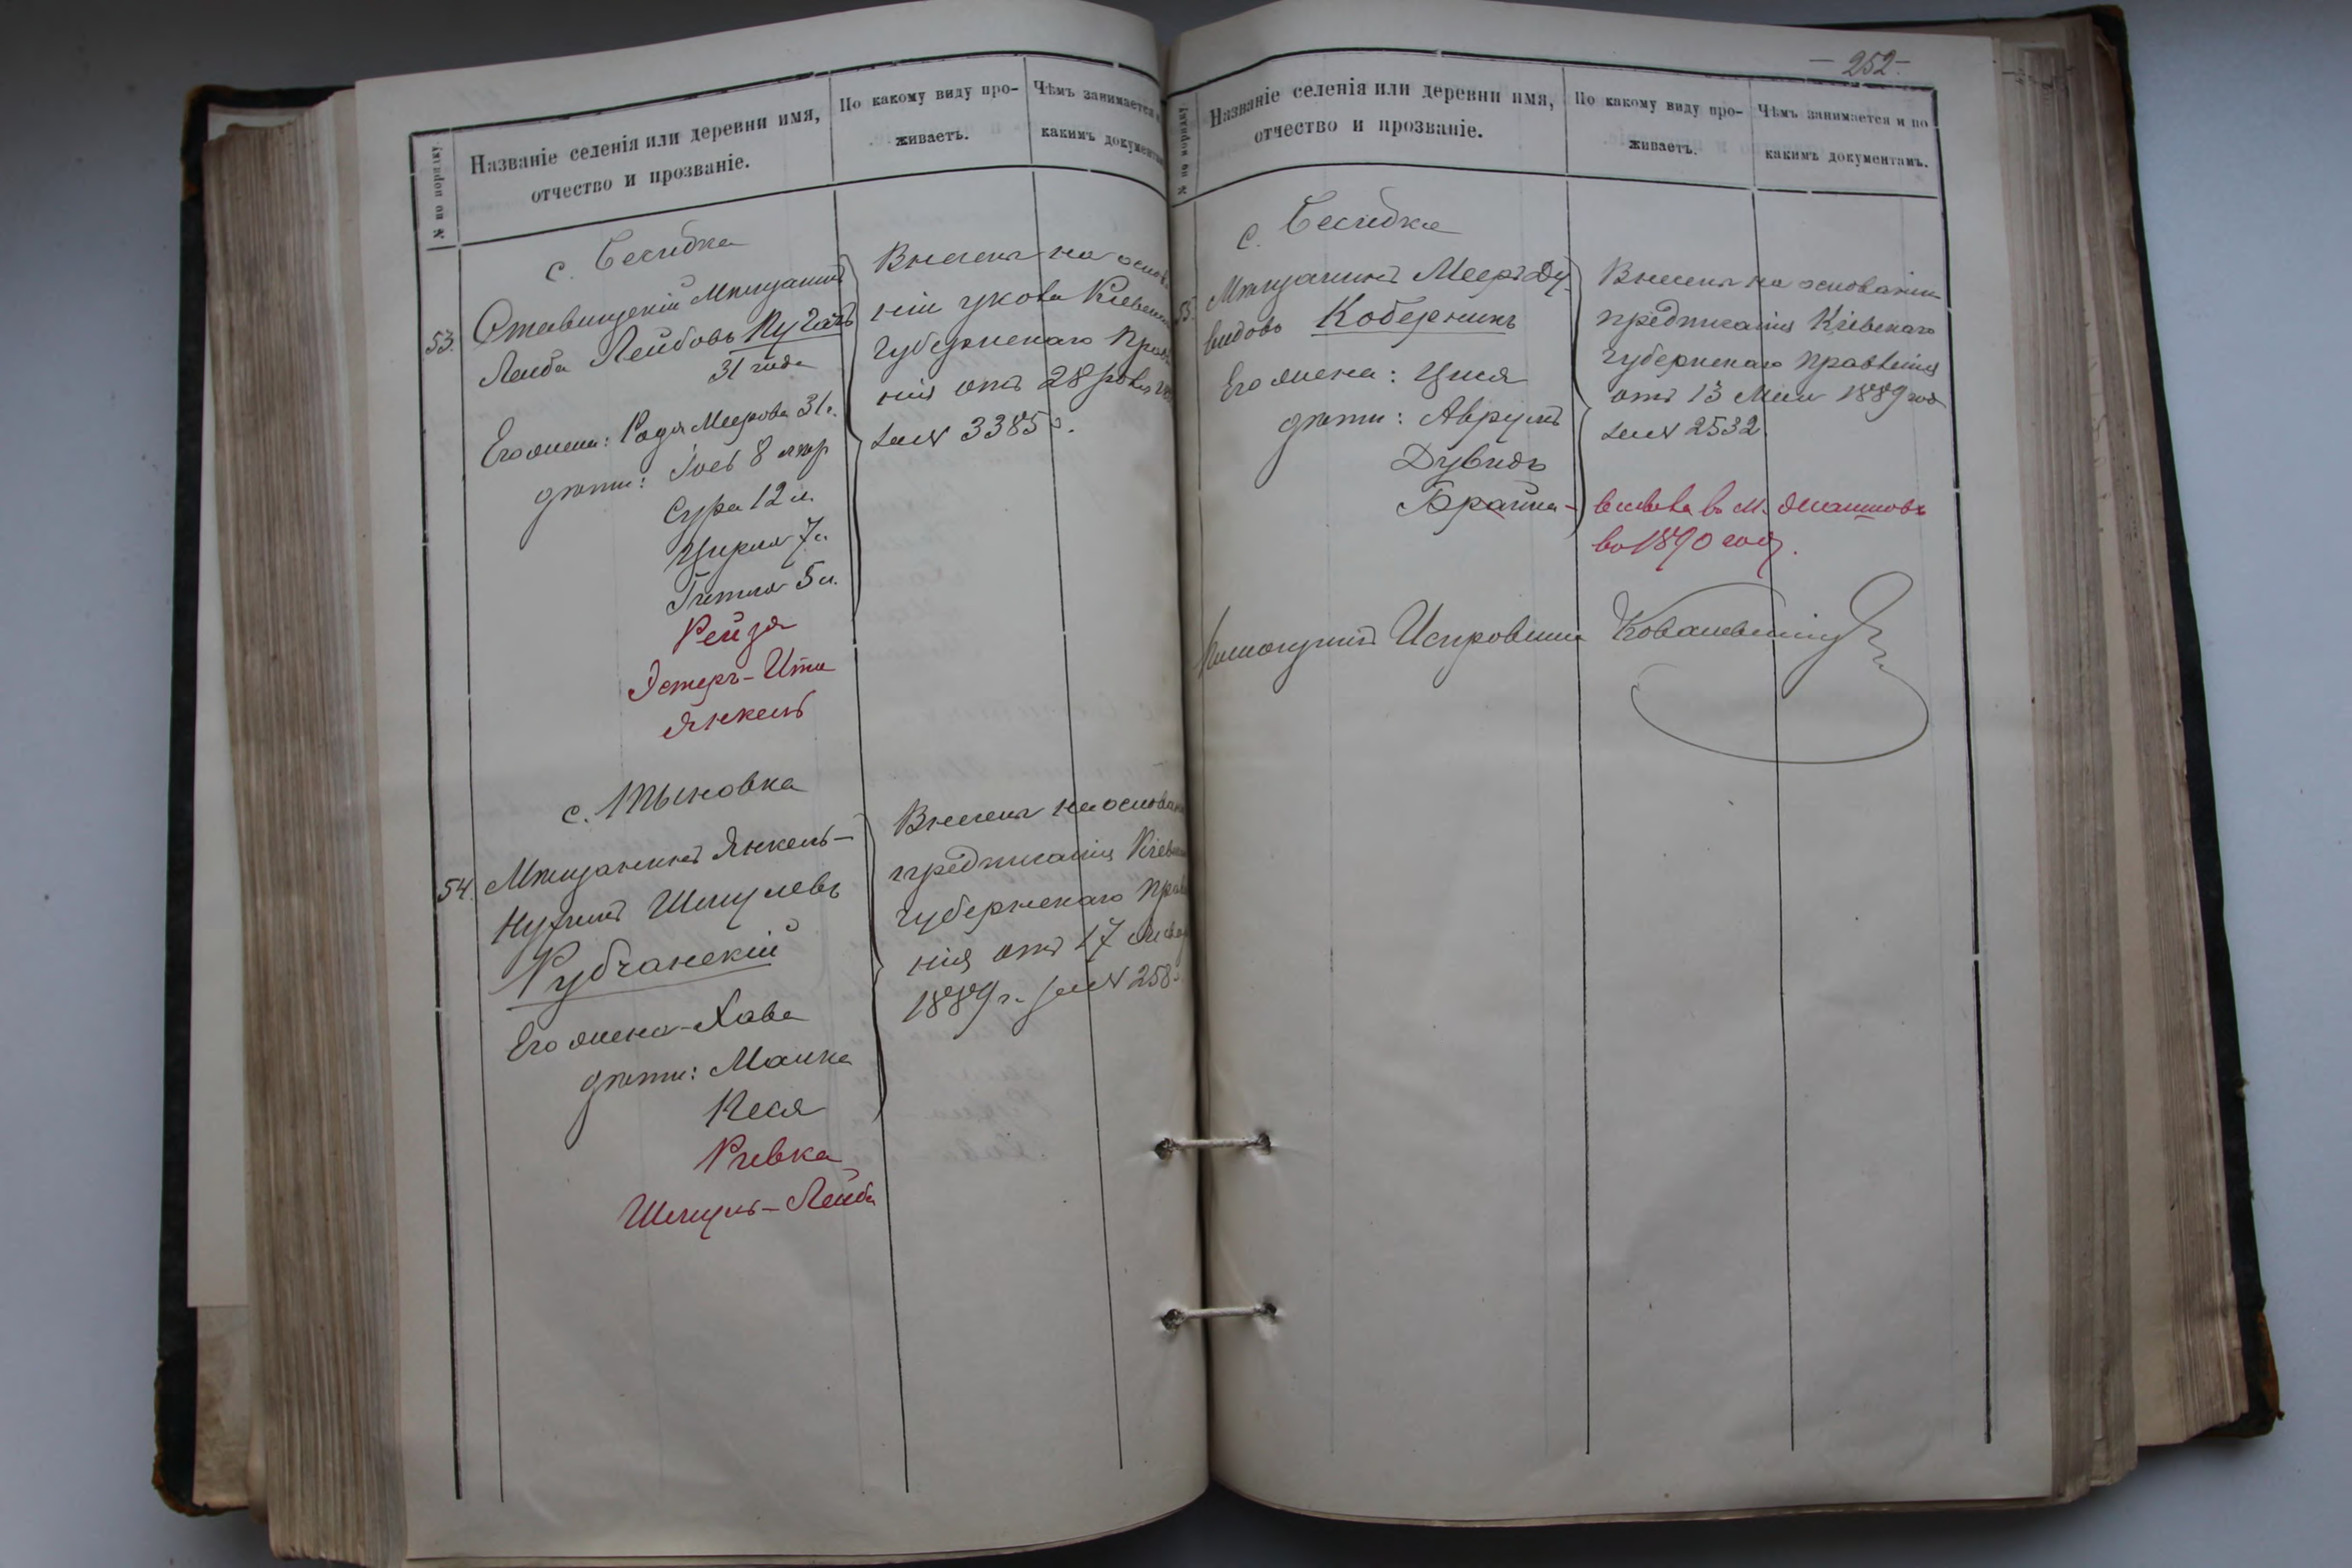 № по порядку.
Названіе селенія или деревни имя,
отчество и прозваніе.
По какому виду про-
живаетъ.
Чѣмъ занимается и
какимъ документамъ
с. Бесидка
53. Ставищенскій Мѣщанинъ
Лейба Лейбовъ Пугачъ
31 года
Его жена: Рося Меерова 31 г.
дѣти: Іось 8 лѣтъ
Сура 12 л.
Цирля 7 л.
Гитля 5 л.
Рейзя
Эстеръ-Ита
Янкель
Внесенъ на основа
ніи указа Кіевскаго
Губернскаго Прав
нія отъ 28
за № 3385
с. Тыновка
54. Мѣщанинъ Янкель-
Нухимъ Шмулевъ
Рубчанскій
Его жена-Хава
дѣти: Малка
Кеся
Ривка
Шмуль-Лейба
Внесенъ на основан
предписанія Кіевск
губернскаго Прав
нія отъ 17
1889 г. за № 258
-252-
№ по порядку
Названіе селенія или деревни имя,
отчество и прозваніе.
По какому виду про-
живаетъ.
Чѣмъ занимается и по
какимъ документамъ.
с. Бесидка
55. Мѣщанинъ Мееръ Ду-
видовъ Коберникъ
Его жена: Цися
дѣти: Аврумъ
Дувидъ
Брайна-
Внесенъ на основаніи
предписанія Кіевскаго
губернскаго Правленія
отъ 13 Мая 1889 года
за № 2532.
въ м. Жашковъ
въ 1890 году.
Помощникъ Исправника Ковалевскій